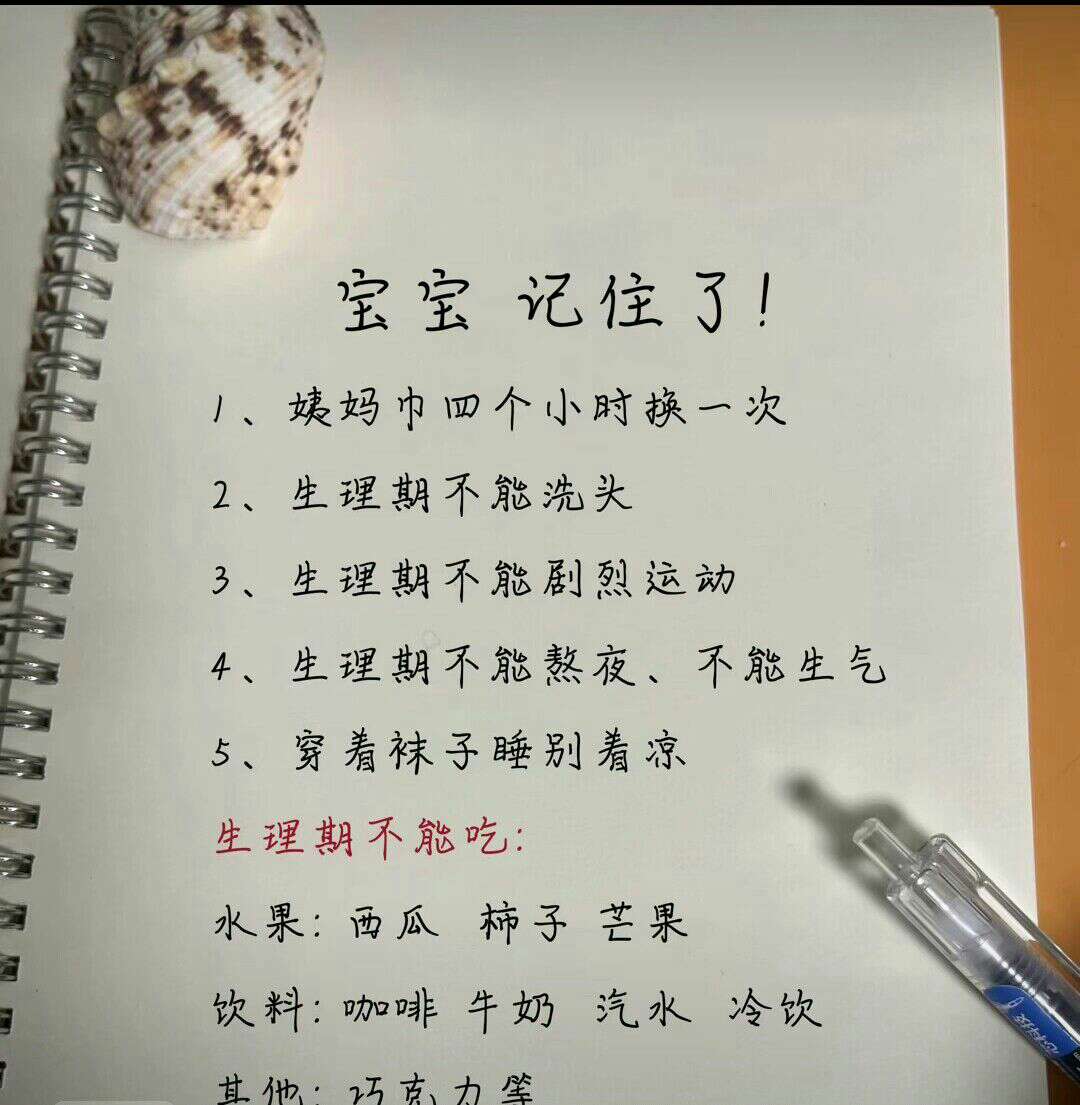 宝宝 记住了!
1、姨妈巾四个小时换一次
2、生理期不能洗头
3、生理期不能剧烈运动
4、生理期不能熬夜、不能生气
5、穿着袜子睡别着凉
生理期不能吃:
水果: 西瓜 柿子 芒果
饮料: 咖啡 牛奶 汽水 冷饮
其他: 巧克力等